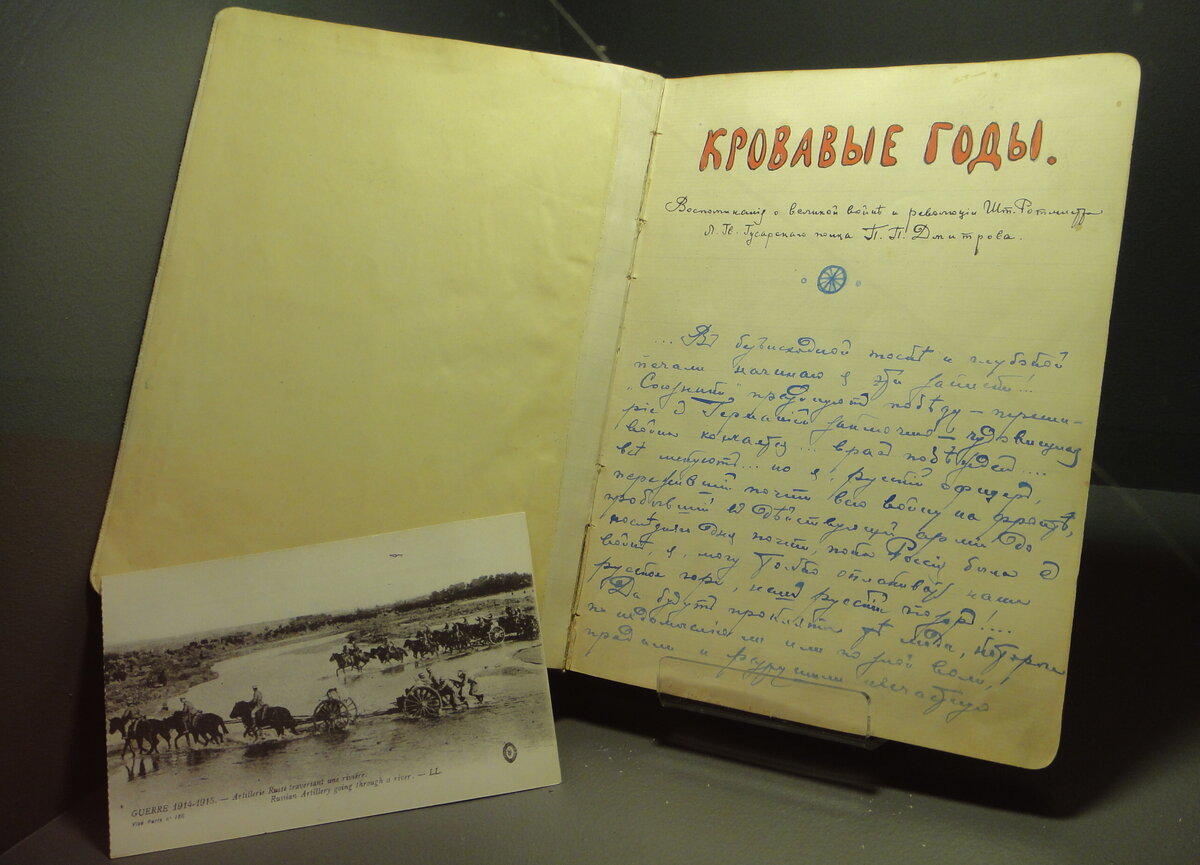 КРОВАВЫЕ ГОДЫ.
Воспоминанія о великой войнѣ и революціи Шт. Ротмистра
Л. Гв. Гусарскаго полка П. П. Дмитрова.
... Въ безысходной тоскѣ и глубокой
печали начинаю я эти записки!...
„Союзники" празднуютъ побѣду – переми-
ріе съ Германіей заключено – чудовищная
война кончается... врагъ побѣжденъ....
всѣ ликуютъ... но я, русскій офицеръ,
пережившій почти всю войну на фронтѣ,
пробывшій въ дѣйствующей арміи до
послѣдняго дня почти, пока Россія была въ
войнѣ, я могу только оплакивать наше
русское горе, нашъ русскій позоръ!...
Да будутъ прокляты тѣ люди, которые
по недомыслію ли или по злой волѣ,
предали и разрушили несчастную
GUERRE 1914-1915. — Artillerie Russe traversant une rivière.
Russian Artillery going through a river. — LL.
Visé Paris n° 186